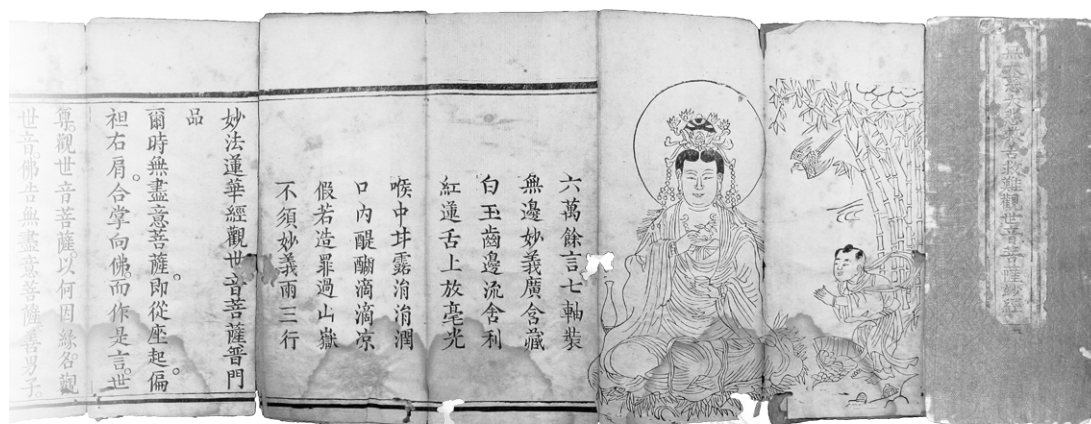 救苦救難觀世音菩薩
六萬餘言七軸裝
無邊妙義廣含藏
白玉齒邊流舍利
紅蓮舌上放毫光
喉中甘露涓涓潤
口內醍醐滴滴凉
假若造罪過山嶽
不須妙義兩三行
妙法蓮華經觀世音菩薩普門
品
爾時無盡意菩薩。即從座起。偏
袒右肩。合掌向佛。而作是言。世
尊。觀世音菩薩。以何因緣。名觀
世音。佛告無盡意菩薩。善男子。